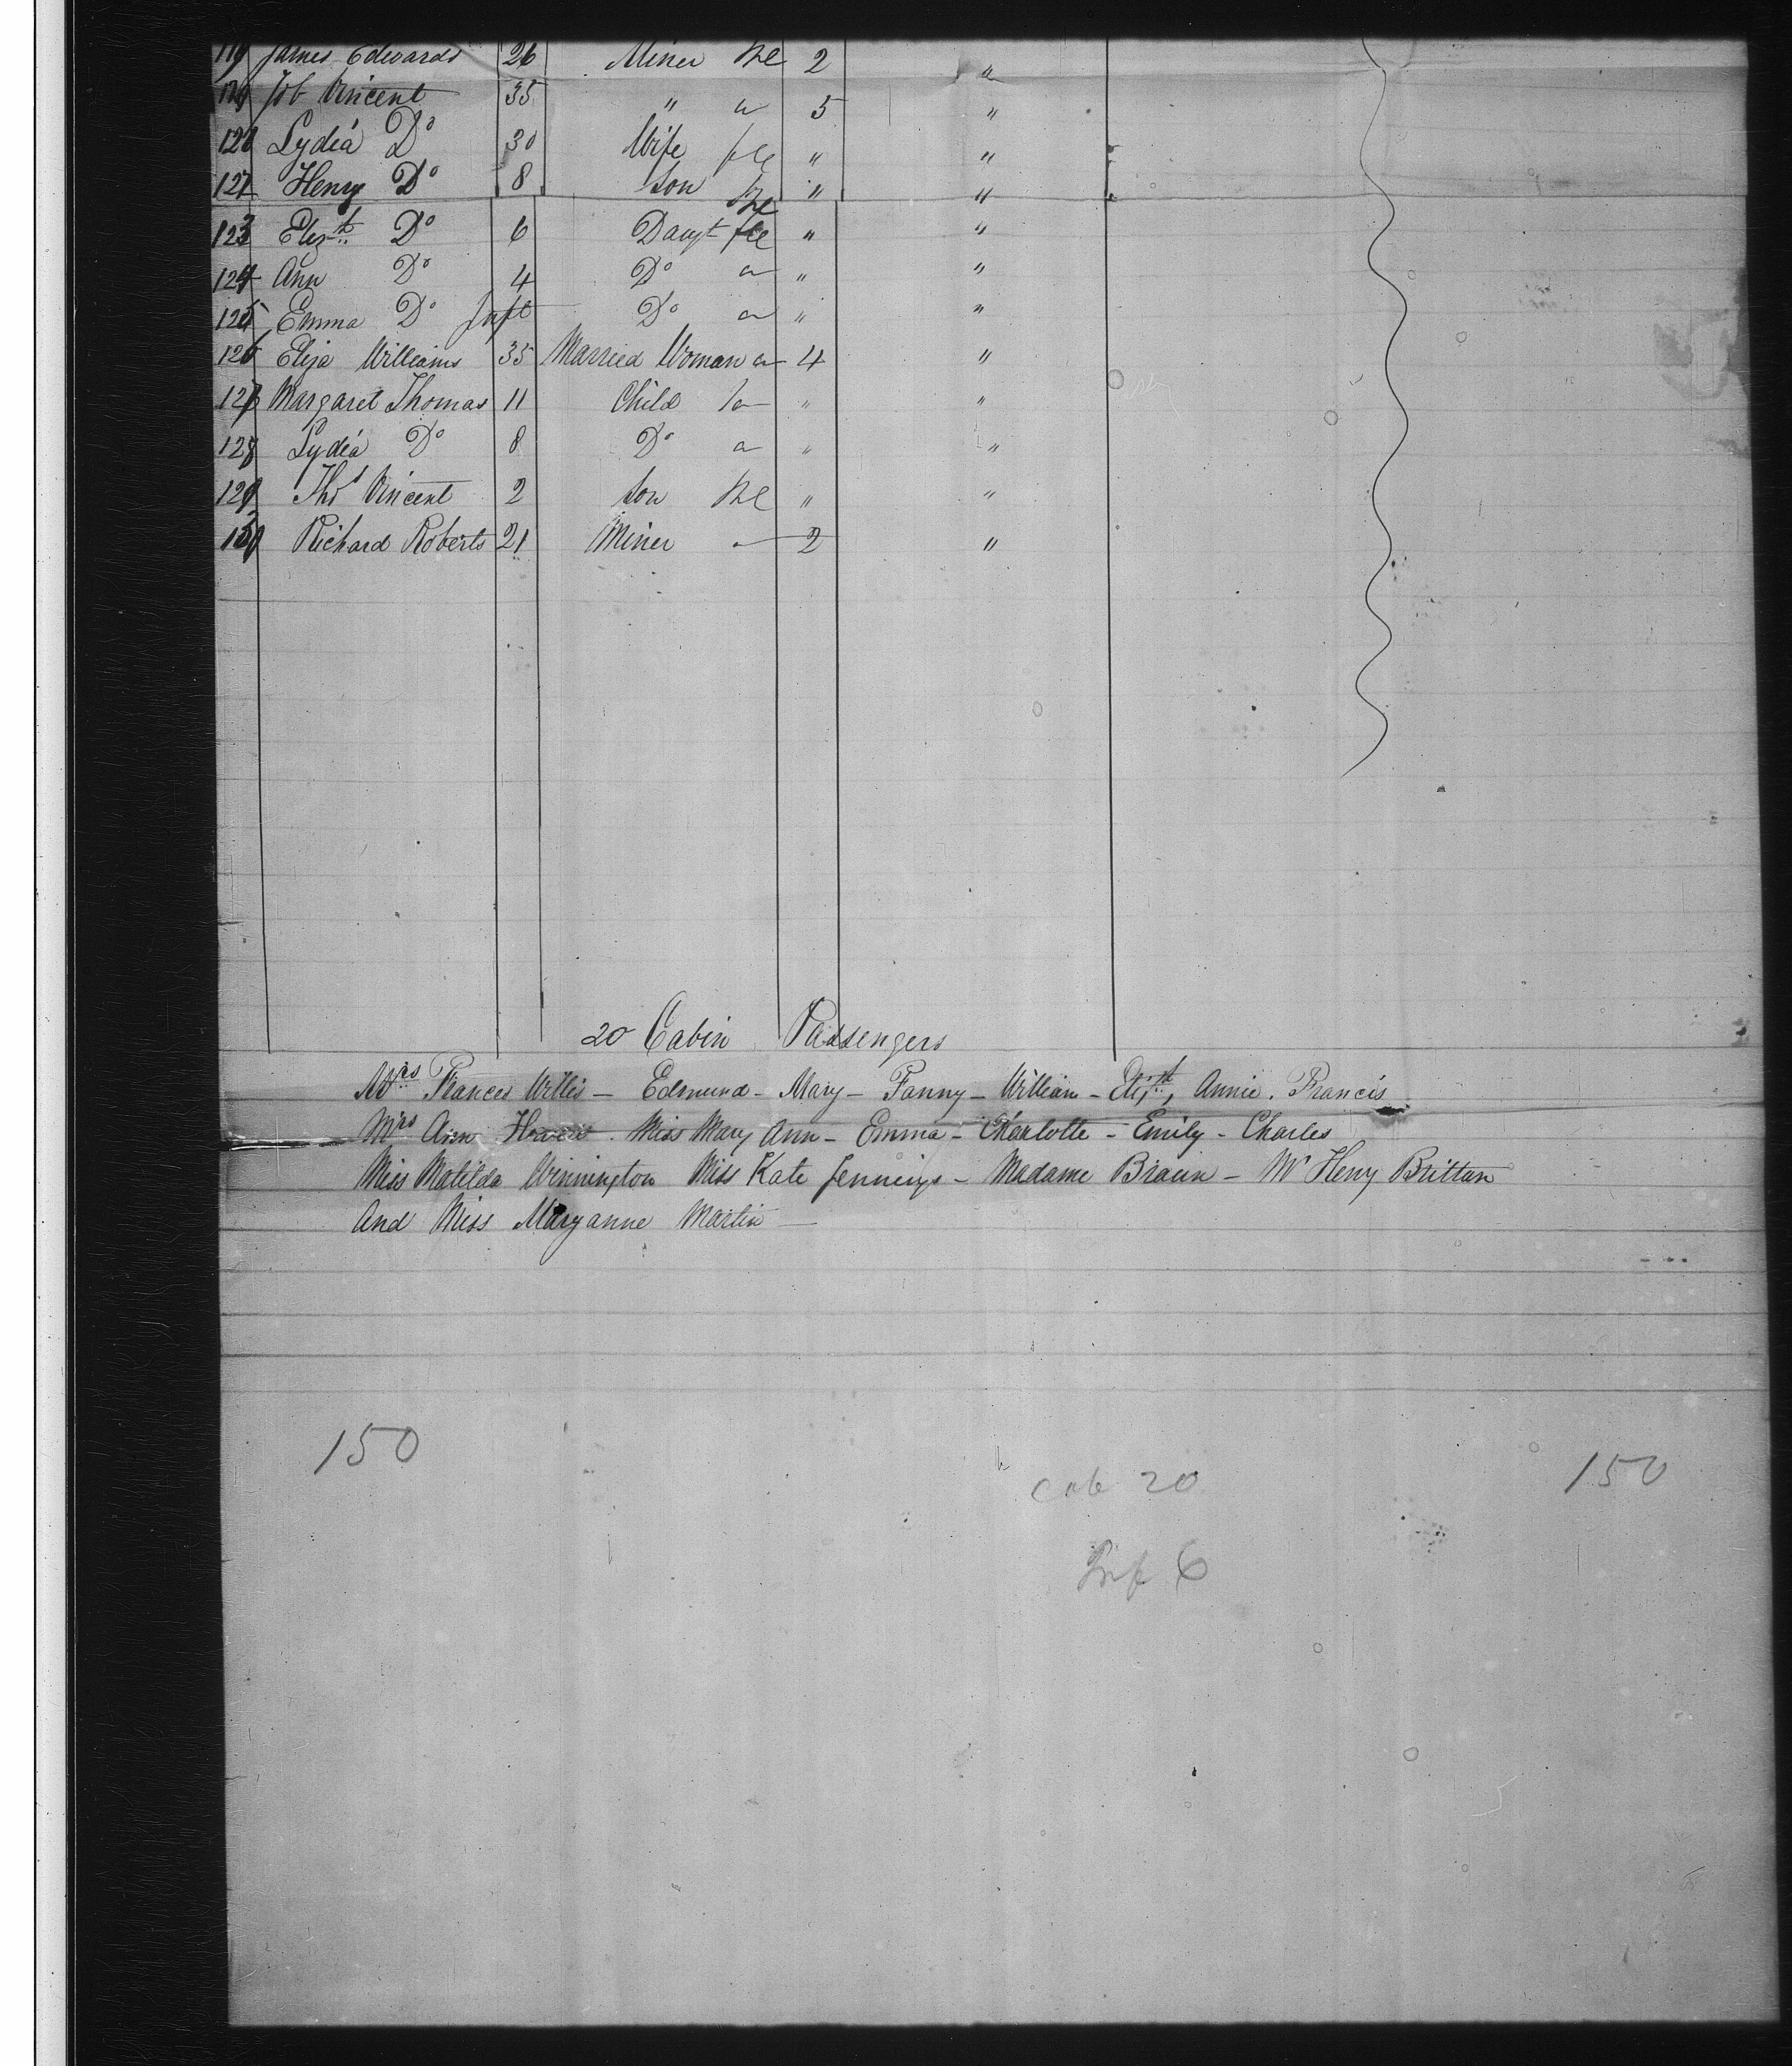 119 James Edwards 26 Miner Me 2 "
Job Vincent 35 " " 5 "
Lydia Do 30 Wife fle " "
Henry Do 8 Son Me " "
123 Elizt Do 6 Daugt fle " "
124 Ann Do 4 Do " " "
125 Emma Do Inft Do " " "
126 Eliza Williams 35 Married Woman " 4 "
127 Margaret Thomas 11 Child " " "
128 Lydia Do 8 Do " " "
129 Thos Vincent 2 Son Me " "
130 Richard Roberts 21 Miner " 2 "
20 Cabin Passengers
Mrs Frances Willis - Edmund - Mary - Fanny - William - Elizt, Annie. Francis
Mrs Ann . Miss Mary Ann - Emma - Charlotte - Emily - Charles
Miss Matilda Winnington Miss Kate Jennings - Madame Braun - Mr Henry Brittan
And Miss Maryanne Martin -
150
Cab 20 150
Inf 6